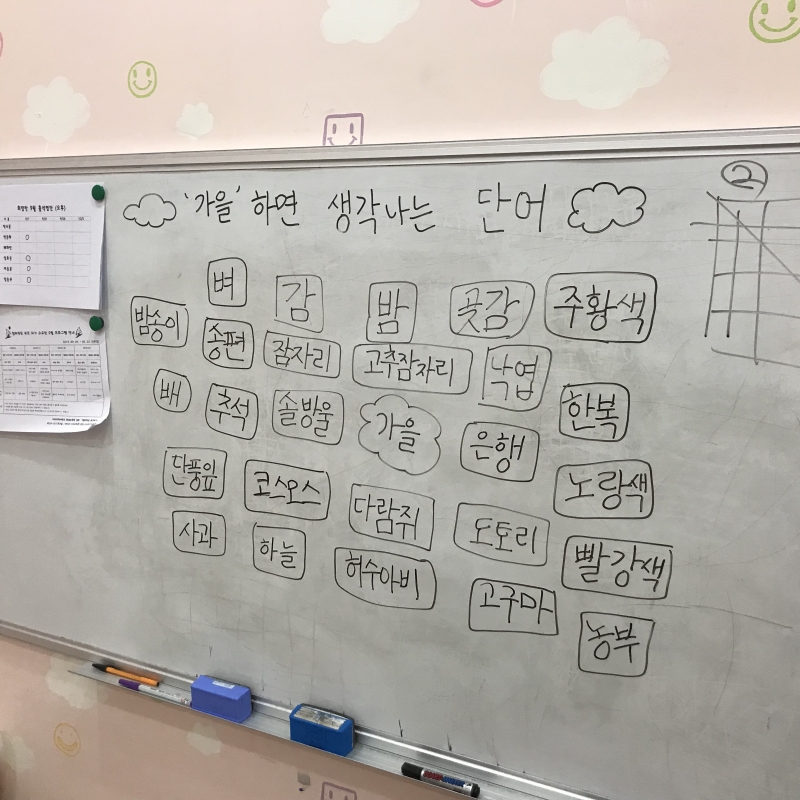 '가을' 하면 생각나는 단어
②
벼 감 밤 곶감 주황색
밤송이 송편 잠자리 고추잠자리 낙엽
배 추석 솔방울 가을 은행 한복
단풍잎 코스모스 다람쥐 도토리 노랑색
사과 하늘 허수아비 고구마 빨강색
농부